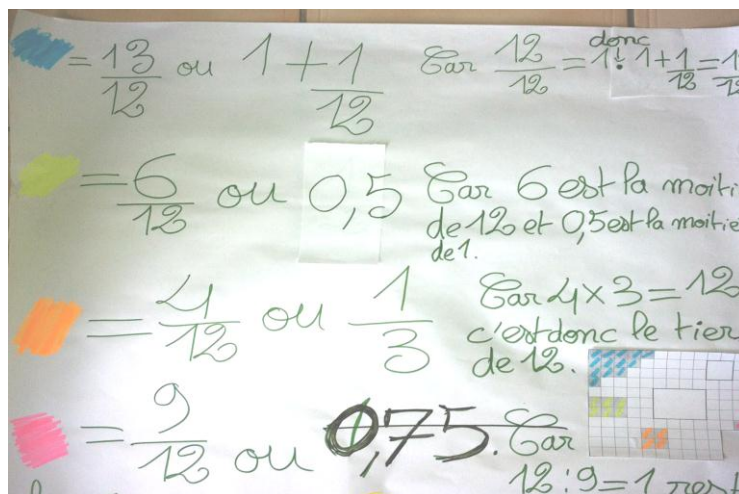 = 13/12 ou 1 + 1/12 Car 12/12 = 1 donc : 1 + 1/12 =
= 6/12 ou 0,5 Car 6 est la moiti
de 12 et 0,5 est la moitie
de 1.
= 4/12 ou 1/3 Car 4 × 3 = 12
c'est donc le tier
de 12.
= 9/12 ou 0,75. Car
12 : 9 = 1 rest